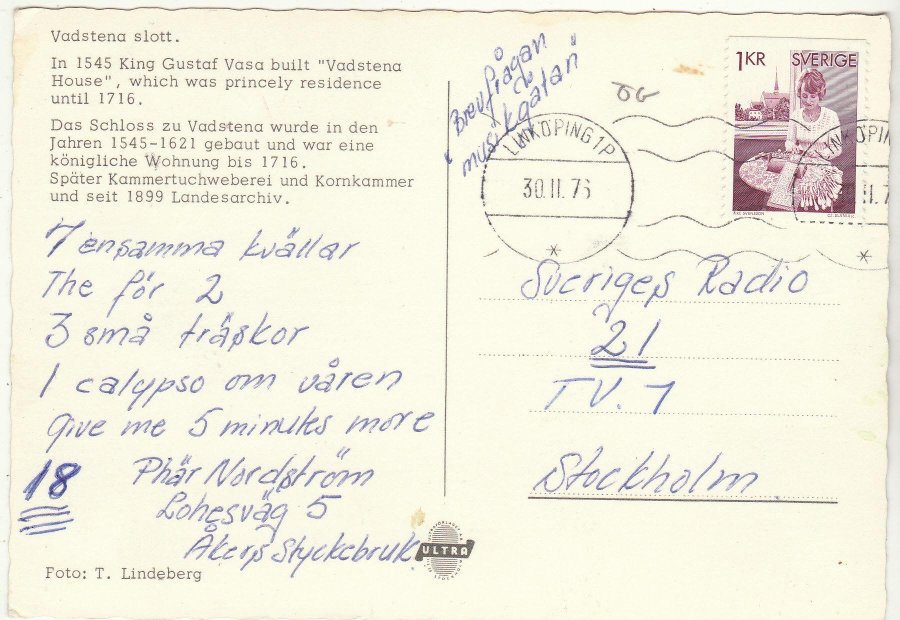 Vadstena slott.
In 1545 King Gustaf Vasa built "Vadstena
House", which was princely residence
until 1716.
Das Schloss zu Vadstena wurde in den
Jahren 1545-1621 gebaut und war eine
königliche Wohnung bis 1716.
Später Kammertuchweberei und Kornkammer
und seit 1899 Landesarchiv.
7 ensamma kvällar
The för 2
3 små träskor
1 calypso om våren
Give me 5 minutes more
18
Phär Nordström
Lohesväg 5
Åkers Styckebruk
Foto: T. Lindeberg
ULTRA
Brevfrågan
"musikgatan"
LINKÖPING 1P
30.11.76
1KR SVERIGE
LINKÖPING
Sveriges Radio
21
TV. 1
Stockholm